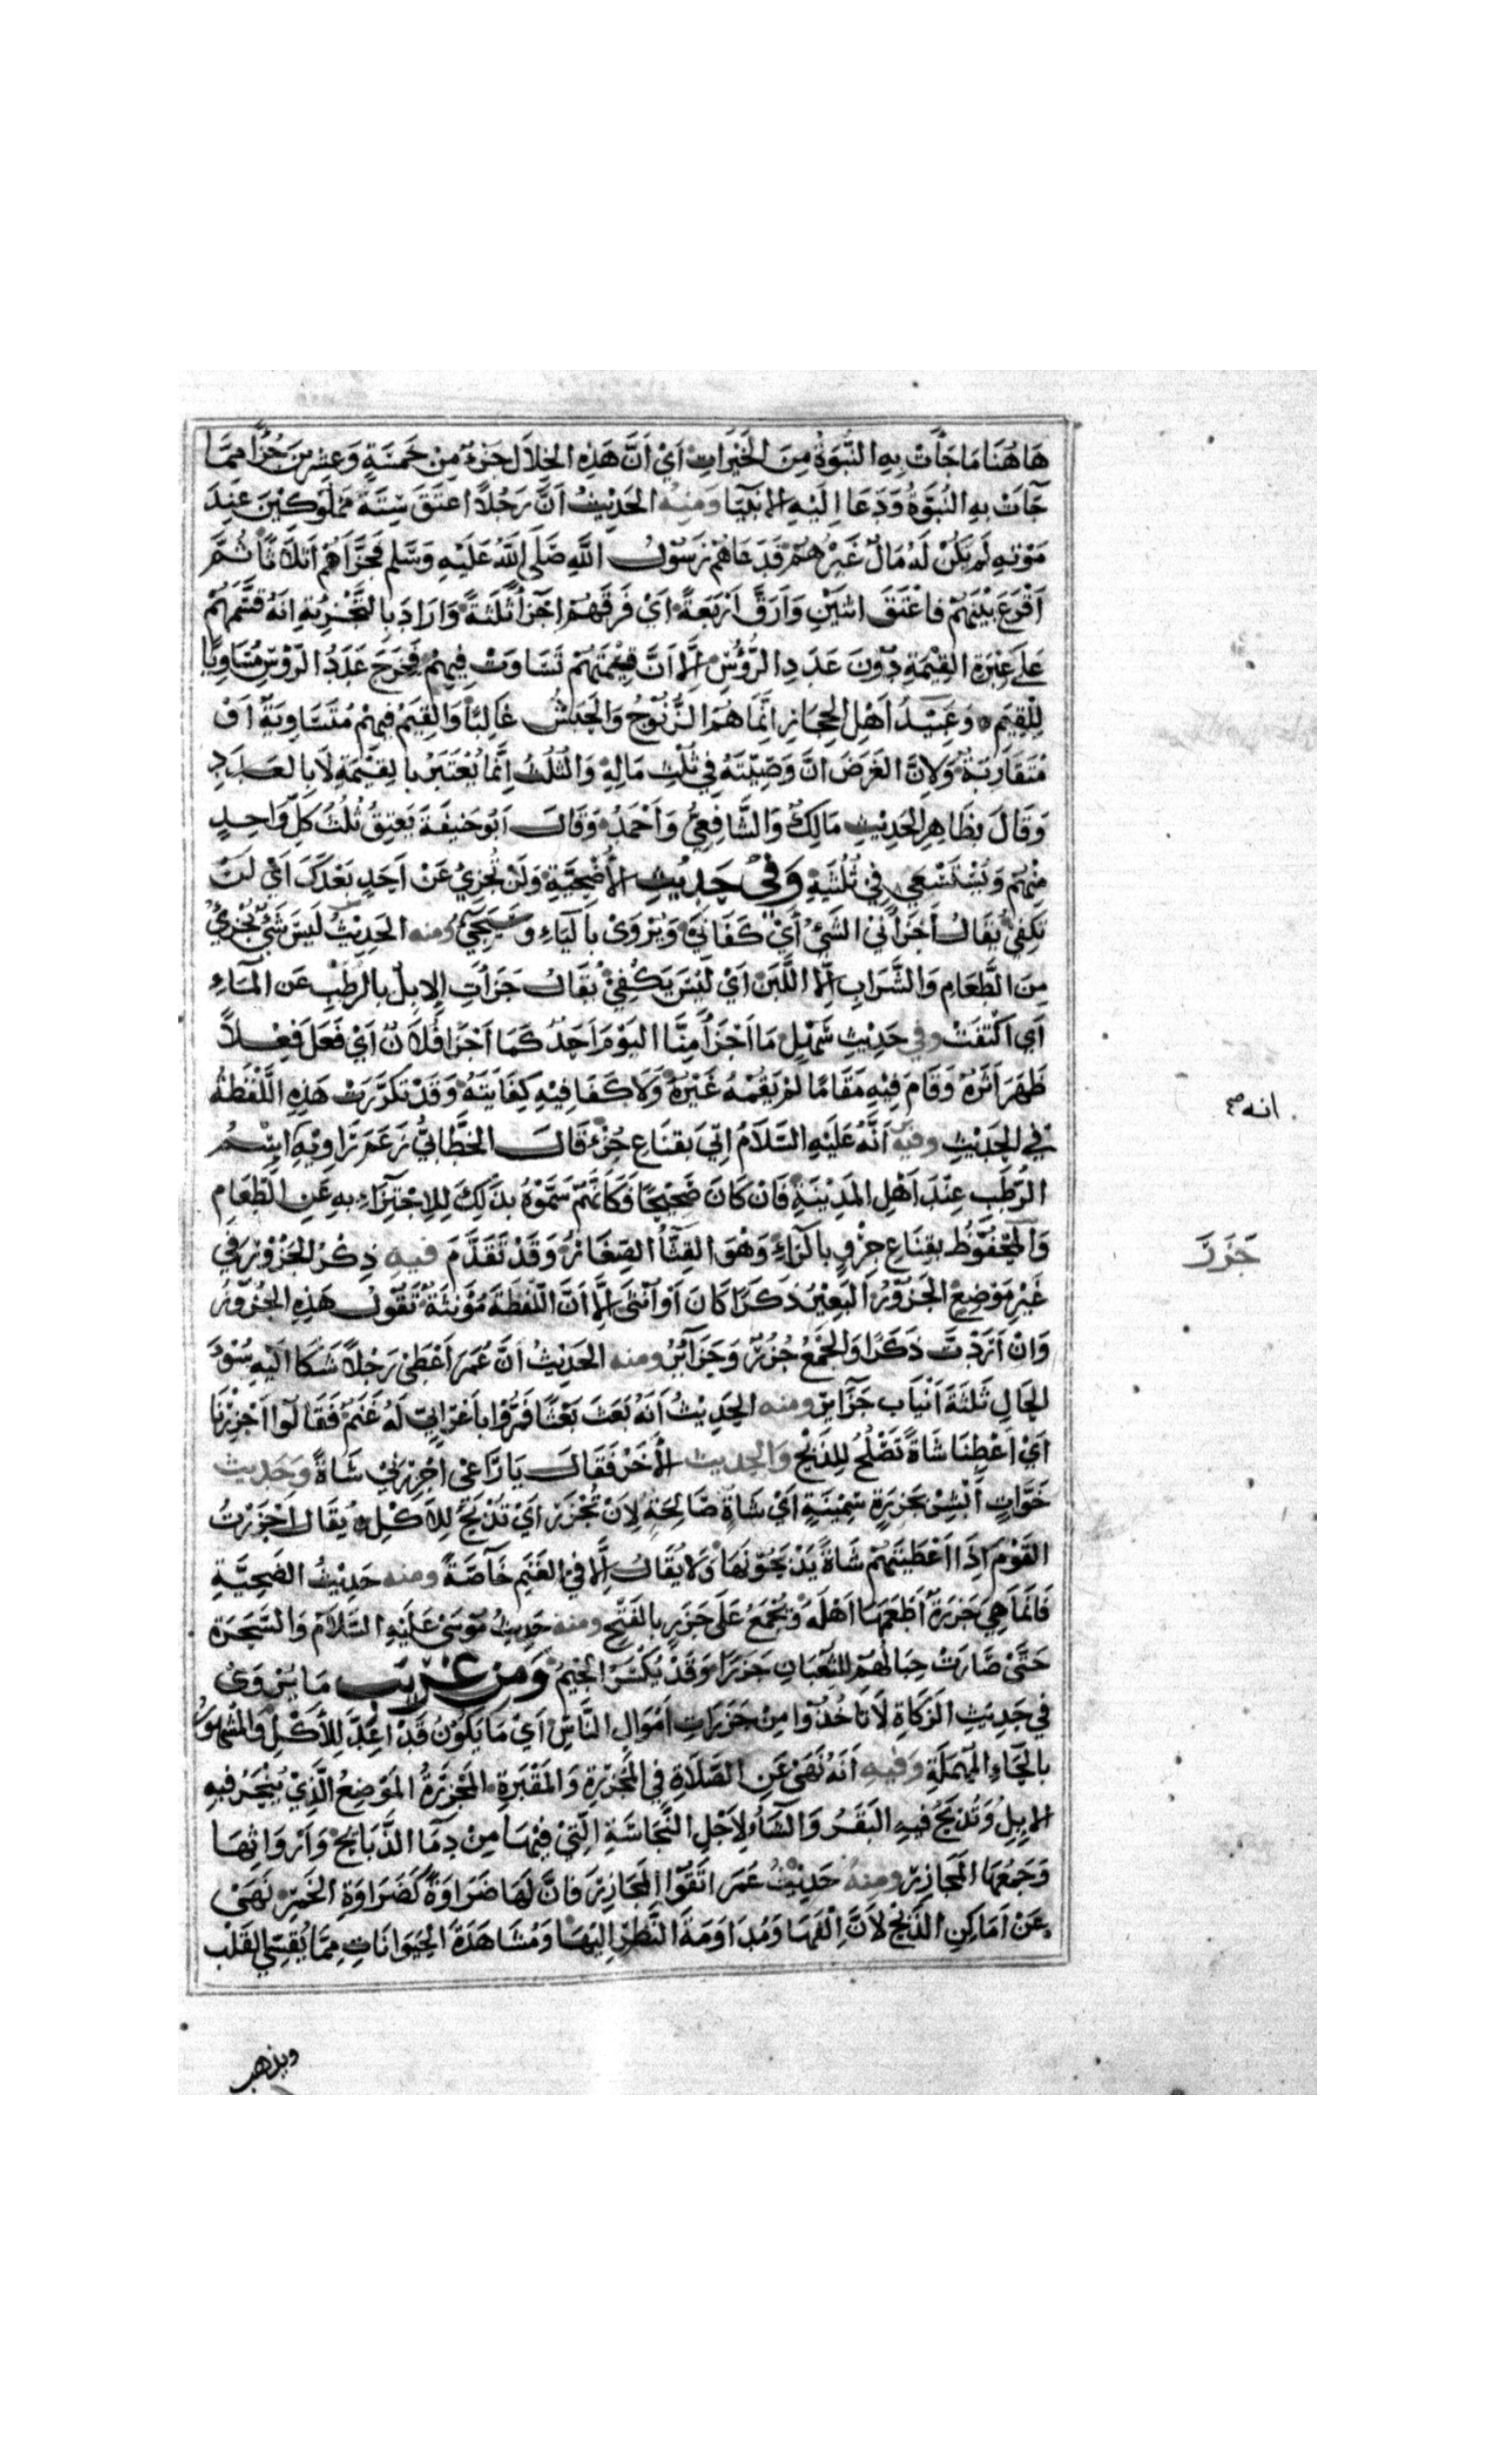 هَاهُنَا مَا جَاْتْ بِهِ النُّبُوَّةُ مِنَ الْخَيْرَاتِ اَيْ اَنَّ هَذِهِ الخِلَالَ جُزءٌ مِنْ خَمْسَةٍ وَعِشْرِيْنَ جُزْأً مِمَّا
جَآتْ بِهِ النُّبُوَّةُ وَدَعَا اِلَيْهِ الانْبِيَا وَمِنْهُ الحَدِيْثُ اَنَّ رَجُلاً اعْتَقَ سِتَّةَ مَمْلُوْكِيْنَ عِنْدَ
مَوْتِهِ لَمْ يَكُنْ لَهُ مَالٌ غَيْرُهُمْ فَدَعَاهُمْ رَسُوْلُ اللَّهِ صَلَى اللَّهُ عَلَيْهِ وَسَلَّم فَجَزَّأَهُمْ اَثْلَاثًا ثُمَّ
اَقْرَعَ بَيْنَهُمْ فَاعْتَقَ اثْنَيْنِ وَاَرَقَّ اَرْبَعَةً اَيْ فَرَّقَهُمْ اجَزْأً ثَلَثَةً وَاَرَادَ بِالتَّجْزِيَةِ اَنَّهُ قَسَّمَهُمْ
عَلَى عِبْرَةِ القِيْمَةِ دُوْنَ عَدَدِ الرُّؤُسِ اِلَّا اَنَّ قِيْمَتَهُمْ تَسَاوَتْ فِيهِمْ فَخَرَجَ عَدَدُ الرُّؤْسِ مُسَاوِيًا
لِلْقِيَمِ وَعَبِيْدُ اَهْلِ الْحِجَازِ اِنَّمَا هُمُ الزُّنُوْجُ وَالْحَبَشُ غَالِبًا وَالْقِيَمُ فِيهِمْ مُتَسَاوِيَةٌ اَوْ
مُتَقَارِبَةٌ وَلِانَّ الغَرَضَ اَنَّ وَصِيَّتَهُ فِي ثُلْثِ مَالِهِ وَالثُّلُثُ اِنَّمَا يُعْتَبَرُ بِالقِيْمَةِ لَا بِالعَدَدِ
وَقَالَ بِظَاهِرِ الحَدِيْثِ مَالِكٌ وَالشَّافِعِيُّ وَاَحْمَدُ وَقَالَ اَبُو حَنِيفَةَ يُعْتِقُ ثُلُثُ كُلِّ وَاحِدٍ
مِنْهُمْ وَيُسْتَسْعِي فِي ثُلُثَيْهِ وَفِي حَدِيْثِ الأُضْحِيَّةِ وَلَنْ تُجْزِيَ عَنْ اَحَدٍ بَعْدَكَ اَيْ لَنْ
تَكْفِي يُقَالُ اَجْزَأَنِي الشَّيْءُ اَيْ كَفَانِي وَيُرْوَى بِالْيَاءِ وَسَيَجِيُ وَمنه الحَدِيْثُ لَيْسَ شَيْءٌ يُجْزِيُ
مِنَ الطَّعَامِ وَالشَّرَابِ اِلَّا اللَّبَنَ اَيْ لَيْسَ يَكْفِيْ يُقَالُ جَزَأَتِ الاِبِلُ بِالرُّطْبِ عَنِ المَآءِ
اَي اكْتَفَتْ وفي حَدِيْثِ سَهْلٍ مَا اَجْزَأَ مِنَّا اليَوْمَ اَحَدٌ كَمَا اَجْزَأَ فُلَانٌ اَيْ فَعَلَ فِعْلاً
ظَهَرَ اَثَرُهُ وَقَامَ فِيْهِ مَقَامًا لَمْ يَقُمْهُ غَيْرُهُ وَلَا كَفَا فِيْهِ كِفَايَتَهُ وَقَدْ تَكَرَّرَتْ هَذِهِ اللَّفْظَةُ
فِي الحَدِيْثِ وفيه اَنَّهُ عَلَيْهِ السَّلَامُ اُتِيَ بِقِنَاعِ جُزْءٍ قَالَ الخَطَّابِيُّ زَعَمَ رَاوِيْهِ اَنَّهُ اسْمُ
انه صح
الرُّطَبِ عِنْدَ اَهْلِ المَدِيْنَةِ فَاِنْ كَانَ صَحِيْحًا فَكَاَنَّهُمْ سَمَّوْهُ بِذَلِكَ لِلاِجْتِزَآءِ بِهِ عَنِ الطَّعَامِ
وَالْمَحْفُوْظُ بِقِنَاعِ جِرْوٍ بِالرَّاءِ وَهُوَ القِثَّأُ الصِّغَارُ وَقَدْ تَقَدَّمَ فيه ذِكْرُ الجَزُوْرِ فِي
جَزَرَ
غَيْرِ مَوْضِعٍ الجَزُوْرُ البَعِيْرُ ذَكَرًا كَانَ اَوْ اُنْثَى اِلَّا اَنَّ اللَّفْظَةَ مُؤَنَّثَةٌ تَقُوْلُ هَذِهِ الجَزُوْرُ
وَاِنْ اَرَدْتَ ذَكَرًا وَالجَمْعُ جُزُرٌ وَجَزَآئِرُ ومنه الحَدِيْثُ اَنَّ عُمَرَ اَعْطَى رَجُلاً شَكَا اِلَيْهِ سُوْءَ
الحَالِ ثَلَثَةَ اَنْيَابٍ جَزَآئِرَ ومنه الحَدِيْثُ اَنَّهُ بَعَثَ بَعْثًا فَمَرُّوْا بِاَعْرَابِيٍّ لَهُ غَنَمٌ فَقَالُوْا اَجْزِرْنَا
اَيْ اَعْطِنَا شَاةً تَصْلُحُ لِلذَّبْحِ وَالحديث الأَخَرُ فَقَالَ يَا رَاعِي اَجْزِرْنِيْ شَاةً وَحَديث
خَوَّاتٍ اَبْشِرْ بِجَزَرَةٍ سَمِيْنَةٍ اَيْ شَاةٍ صَالِحَةٍ لِاَنْ تُجْزَرَ اَيْ تُذْبَحَ لِلْاَكْلِ يُقَالُ اَجْزَرْتُ
القَوْمَ اِذَا اَعْطَيْتَهُمْ شَاةً يَذْبَحُوْنَهَا وَلَا يُقَالُ اِلَّا فِي الغَنَمِ خَآصَّةً ومنه حَدِيْثُ الضَّحِيَّةِ
فَاِنَّمَا هِيَ جَزَرَةٌ اَطْعَمَهَا اَهْلَهُ وَتُجْمَعُ عَلَى جَزَرٍ بِالفَتْحِ ومنه حَدِيثُ مُوْسَى عَلَيْهِ السَّلَامُ وَالسَّحَرَةِ
حَتَّى صَارَتْ حِبَالُهُمْ لِلثُّعْبَانِ جَزَرًا وَقَدْ يُكْسَرُ الْجِيْمُ وَمِنْ غَرِيْبِ مَا يُرْوَى
فِي حَدِيْثِ الزَّكَاةِ لَا تَاخُذُوْا مِنْ جَزَرَاتِ اَمْوَالِ النَّاسِ اَيْ مَا يَكُوْنُ قَدْ اُعِدَّ لِلْاَكْلِ وَالمَشْهُوْرُ
بِالحَآءِ المُهْمَلَةِ وَفيه اَنَّهُ نَهَى عَنِ الصَّلَاةِ فِي المَجْزَرَةِ وَالمَقْبَرَةِ المَجْزَرَةُ المَوْضِعُ الَّذِيْ يُنْحَرُ فِيهِ
الابِلُ وَتُذْبَحُ فِيهِ البَقَرُ وَالشَّأُ لِاَجْلِ النَّجَاسَةِ الَّتِيْ فِيْهَا مِنْ دِمَآ الذَّبَائِحِ وَاَرْوَاثِهَا
وَجَمْعُهَا المَجَازِرُ ومِنْهُ حَدِيْثُ عُمَرَ اتَّقُوْا المَجَازِرَ فَاِنَّ لَهَا ضَرَاوَةً كَضَرَاوَةِ الخَمْرِ نَهَى
عَنْ اَمَاكِنِ الذَّبْحِ لِاَنَّ اِلْفَهَا وَمُدَاوَمَةَ النَّظَرِ اِلَيْهَا وَمُشَاهَدَةَ الْحَيَوَانَاتِ مِمَّا يُقَسِّي القَلْبَ
ويذهب